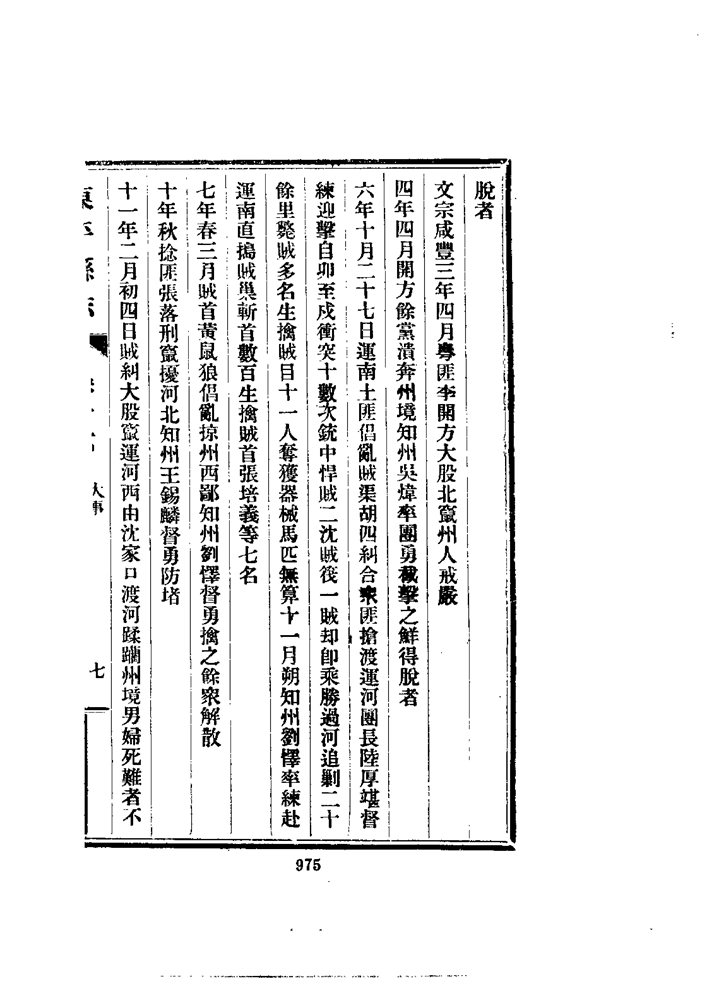 脫者
文宗咸豐三年四月粵匪李開方大股北竄州人戒嚴
四年四月開方餘黨潰奔州境知州吳煒率團勇截擊之鮮得脫者
六年十月二十七日運南土匪倡亂賊渠胡四糾合衆匪搶渡運河團長陸厚堪督
練迎擊自卯至戍衝突十數次銃中悍賊二沈賊筏一賊却卽乘勝過河追剿二十
餘里斃賊多名生擒賊目十一人奪獲器械馬匹無算十一月朔知州劉懌率練赴
運南直搗賊巢斬首數百生擒賊首張培義等七名
七年春三月賊首黃鼠狼倡亂掠州西鄙知州劉懌督勇擒之餘衆解散
十年秋捻匪張落刑竄擾河北知州王錫麟督勇防堵
十一年二月初四日賊糾大股竄運河西由沈家口渡河蹂躪州境男婦死難者不
東平縣志
大事
七
975